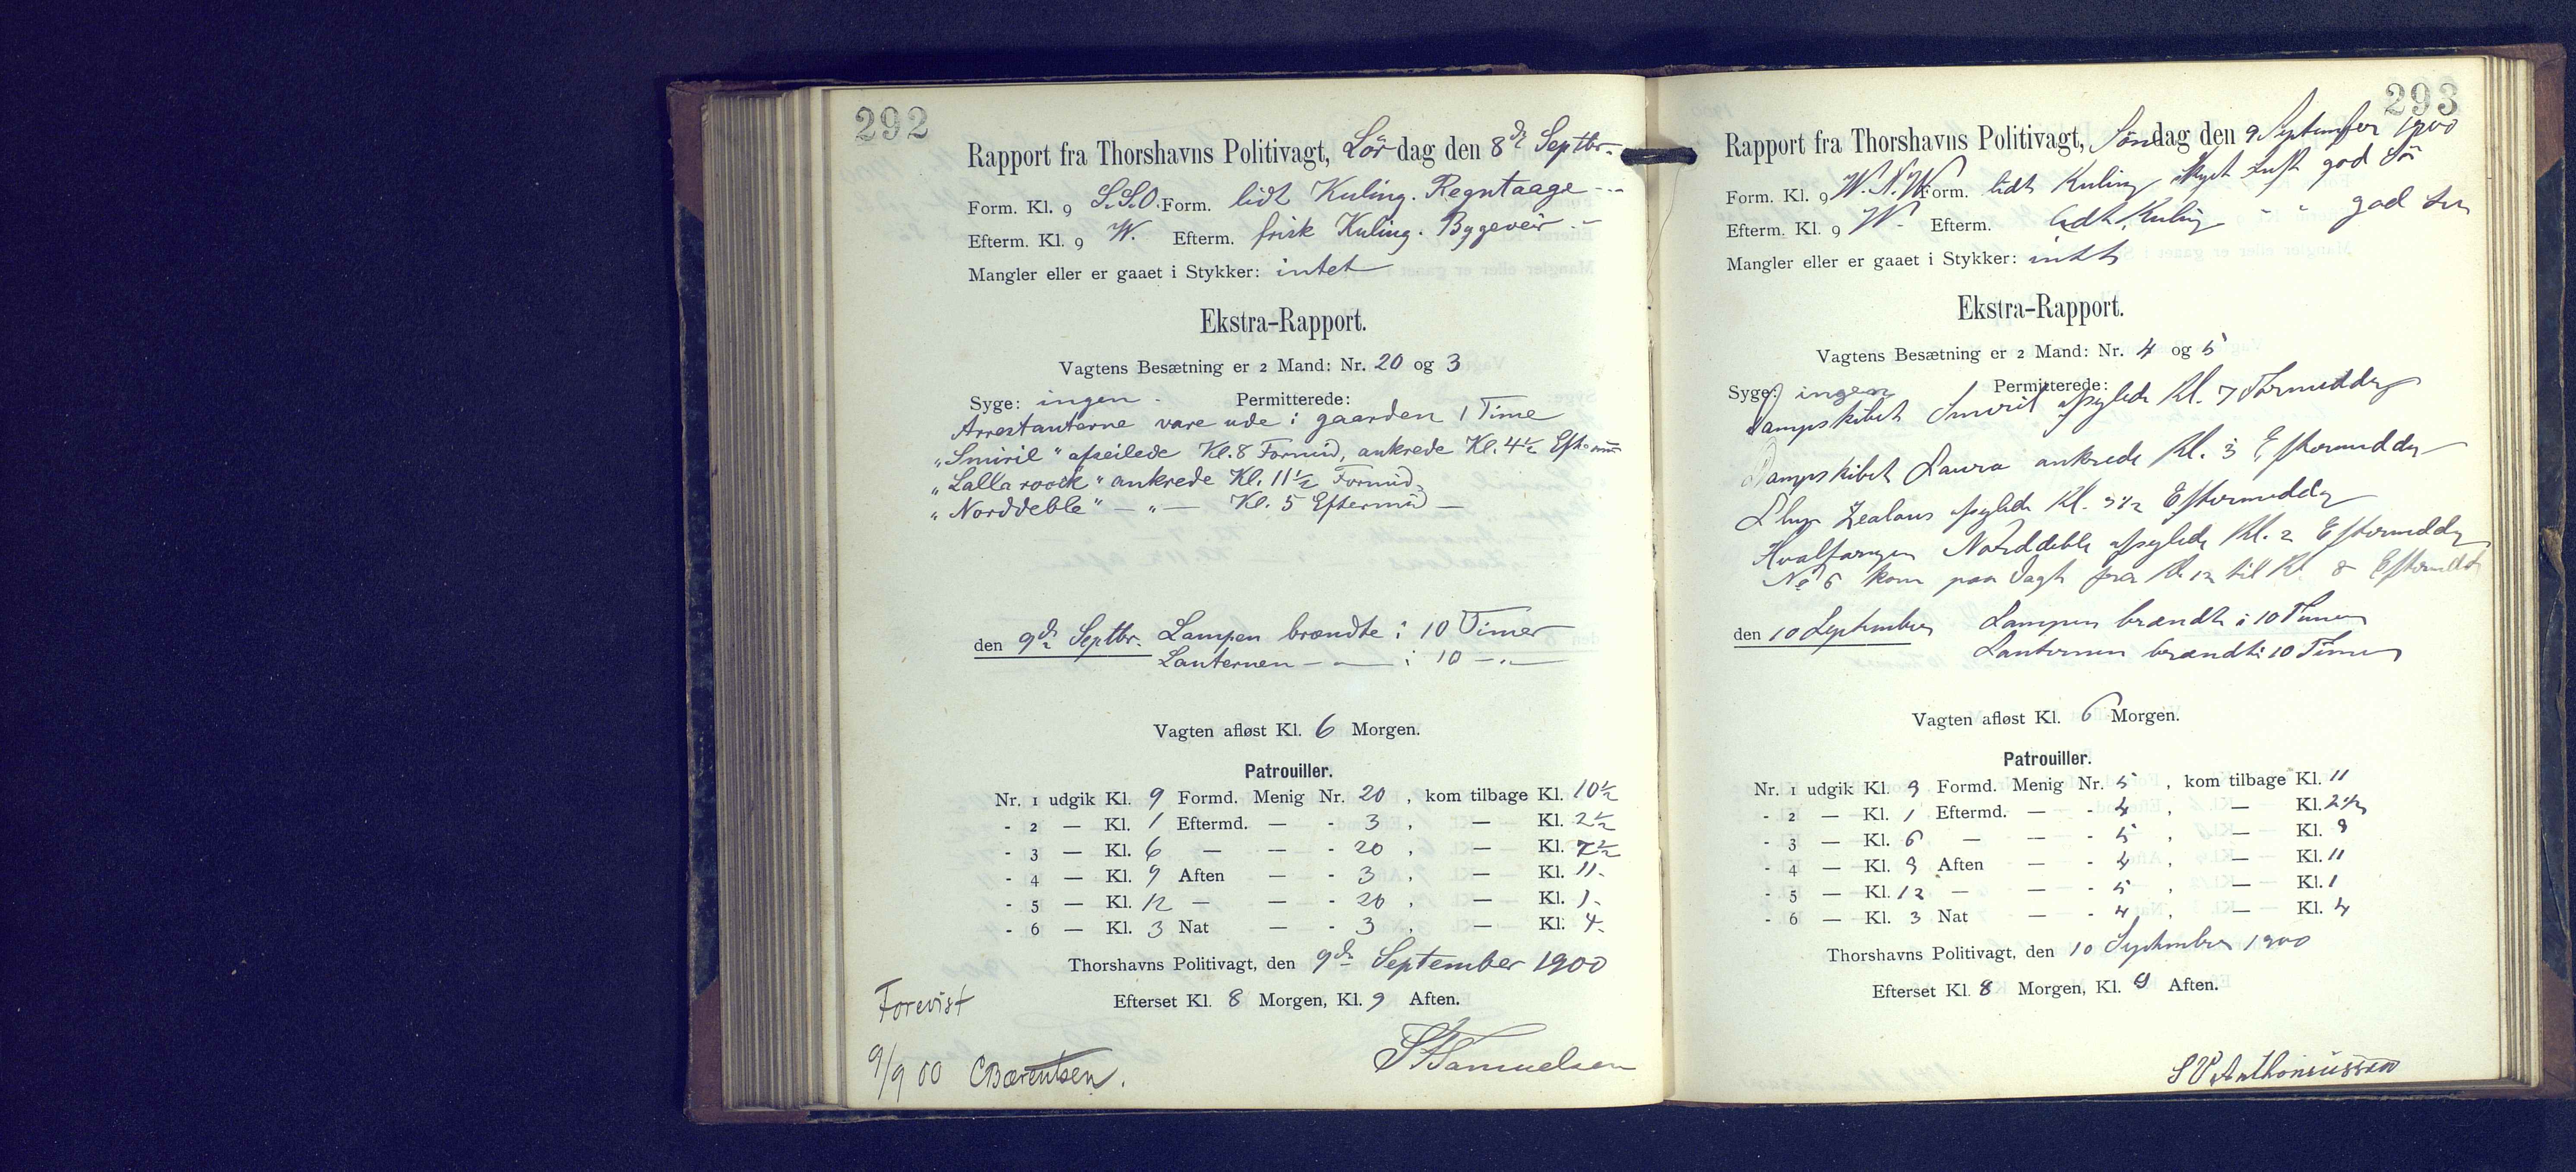 292
Rapport fra Thorshavns Politivagt, Lördag den 8de Septbr.
Form. Kl. 9 S.S.O. Form. lidt Kuling. Regntaage
Efterm. Kl. 9 W. Efterm. frisk Kuling. Bygeveir
Mangler eller er gaaet i Stykker: intet
Ekstra-Rapport.
Vagtens Besætning er 2 Mand: Nr. 20 og 3
Syge: ingen. Permitterede:
Arrestanterne vare ude i gaarden 1 Time
"Smiril" afseilede Kl. 8 Formid, ankrede Kl. 4½ Efterm
"Lalla roock" ankrede Kl. 11½ Formid.
"Norddeble" — " — Kl. 5 Eftermid —
den 9de Septbr. Lampen brændte i 10 Timer
Lanternen — " — i 10 — " —
Vagten afløst Kl. 6 Morgen.
Patrouiller.
Nr. 1 udgik Kl. 9 Formd. Menig Nr. 20, kom tilbage Kl. 10½
- 2 — Kl. 1 Eftermd. — - 3, — Kl. 2½
- 3 — Kl. 6 — — - 20, — Kl. 7½
- 4 — Kl. 9 Aften — - 3, — Kl. 11.
- 5 — Kl. 12 — — - 20, — Kl. 1.
- 6 — Kl. 3 Nat — - 3, — Kl. 4.
Thorshavns Politivagt, den 9de September 1900
Efterset Kl. 8 Morgen, Kl. 9 Aften.
Forevist
9/9 00 CBærentsen.
Samuelsen
293
Rapport fra Thorshavns Politivagt, Söndag den 9 September 1900
Form. Kl. 9 W.N.W. Form. lidt Kuling Skyet Luft god Sö
Efterm. Kl. 9 W. Efterm. lidt Kuling " " god Sö
Mangler eller er gaaet i Stykker: intet
Ekstra-Rapport.
Vagtens Besætning er 2 Mand: Nr. 4 og 5
Syge: ingen Permitterede:
Dampskibet Smiril afsylede Kl. 7 Formiddag
Dampskibet Laura ankrede Kl. 3 Eftermiddag
Slup Zealous afsylede Kl. 3½ Eftermiddag
Hvalfangen Norddeble afsylede Kl. 2 Eftermiddag
No 6 kom paa Vagt fra Kl 12 til Kl 8 Eftermidd
den 10 September Lampen brændte i 10 Timer
Lanternen brændte 10 Timer
Vagten afløst Kl. 6 Morgen.
Patrouiller.
Nr. 1 udgik Kl. 9 Formd. Menig Nr. 5, kom tilbage Kl. 11
- 2 — Kl. 1 Eftermd. — - 4, — Kl. 2½
- 3 — Kl. 6 — — - 5, — Kl. 8
- 4 — Kl. 9 Aften — - 4, — Kl. 11
- 5 — Kl. 12 — — - 5, — Kl. 1
- 6 — Kl. 3 Nat — - 4, — Kl. 4
Thorshavns Politivagt, den 10 September 1900
Efterset Kl. 8 Morgen, Kl. 9 Aften.
S P Anthoniussen